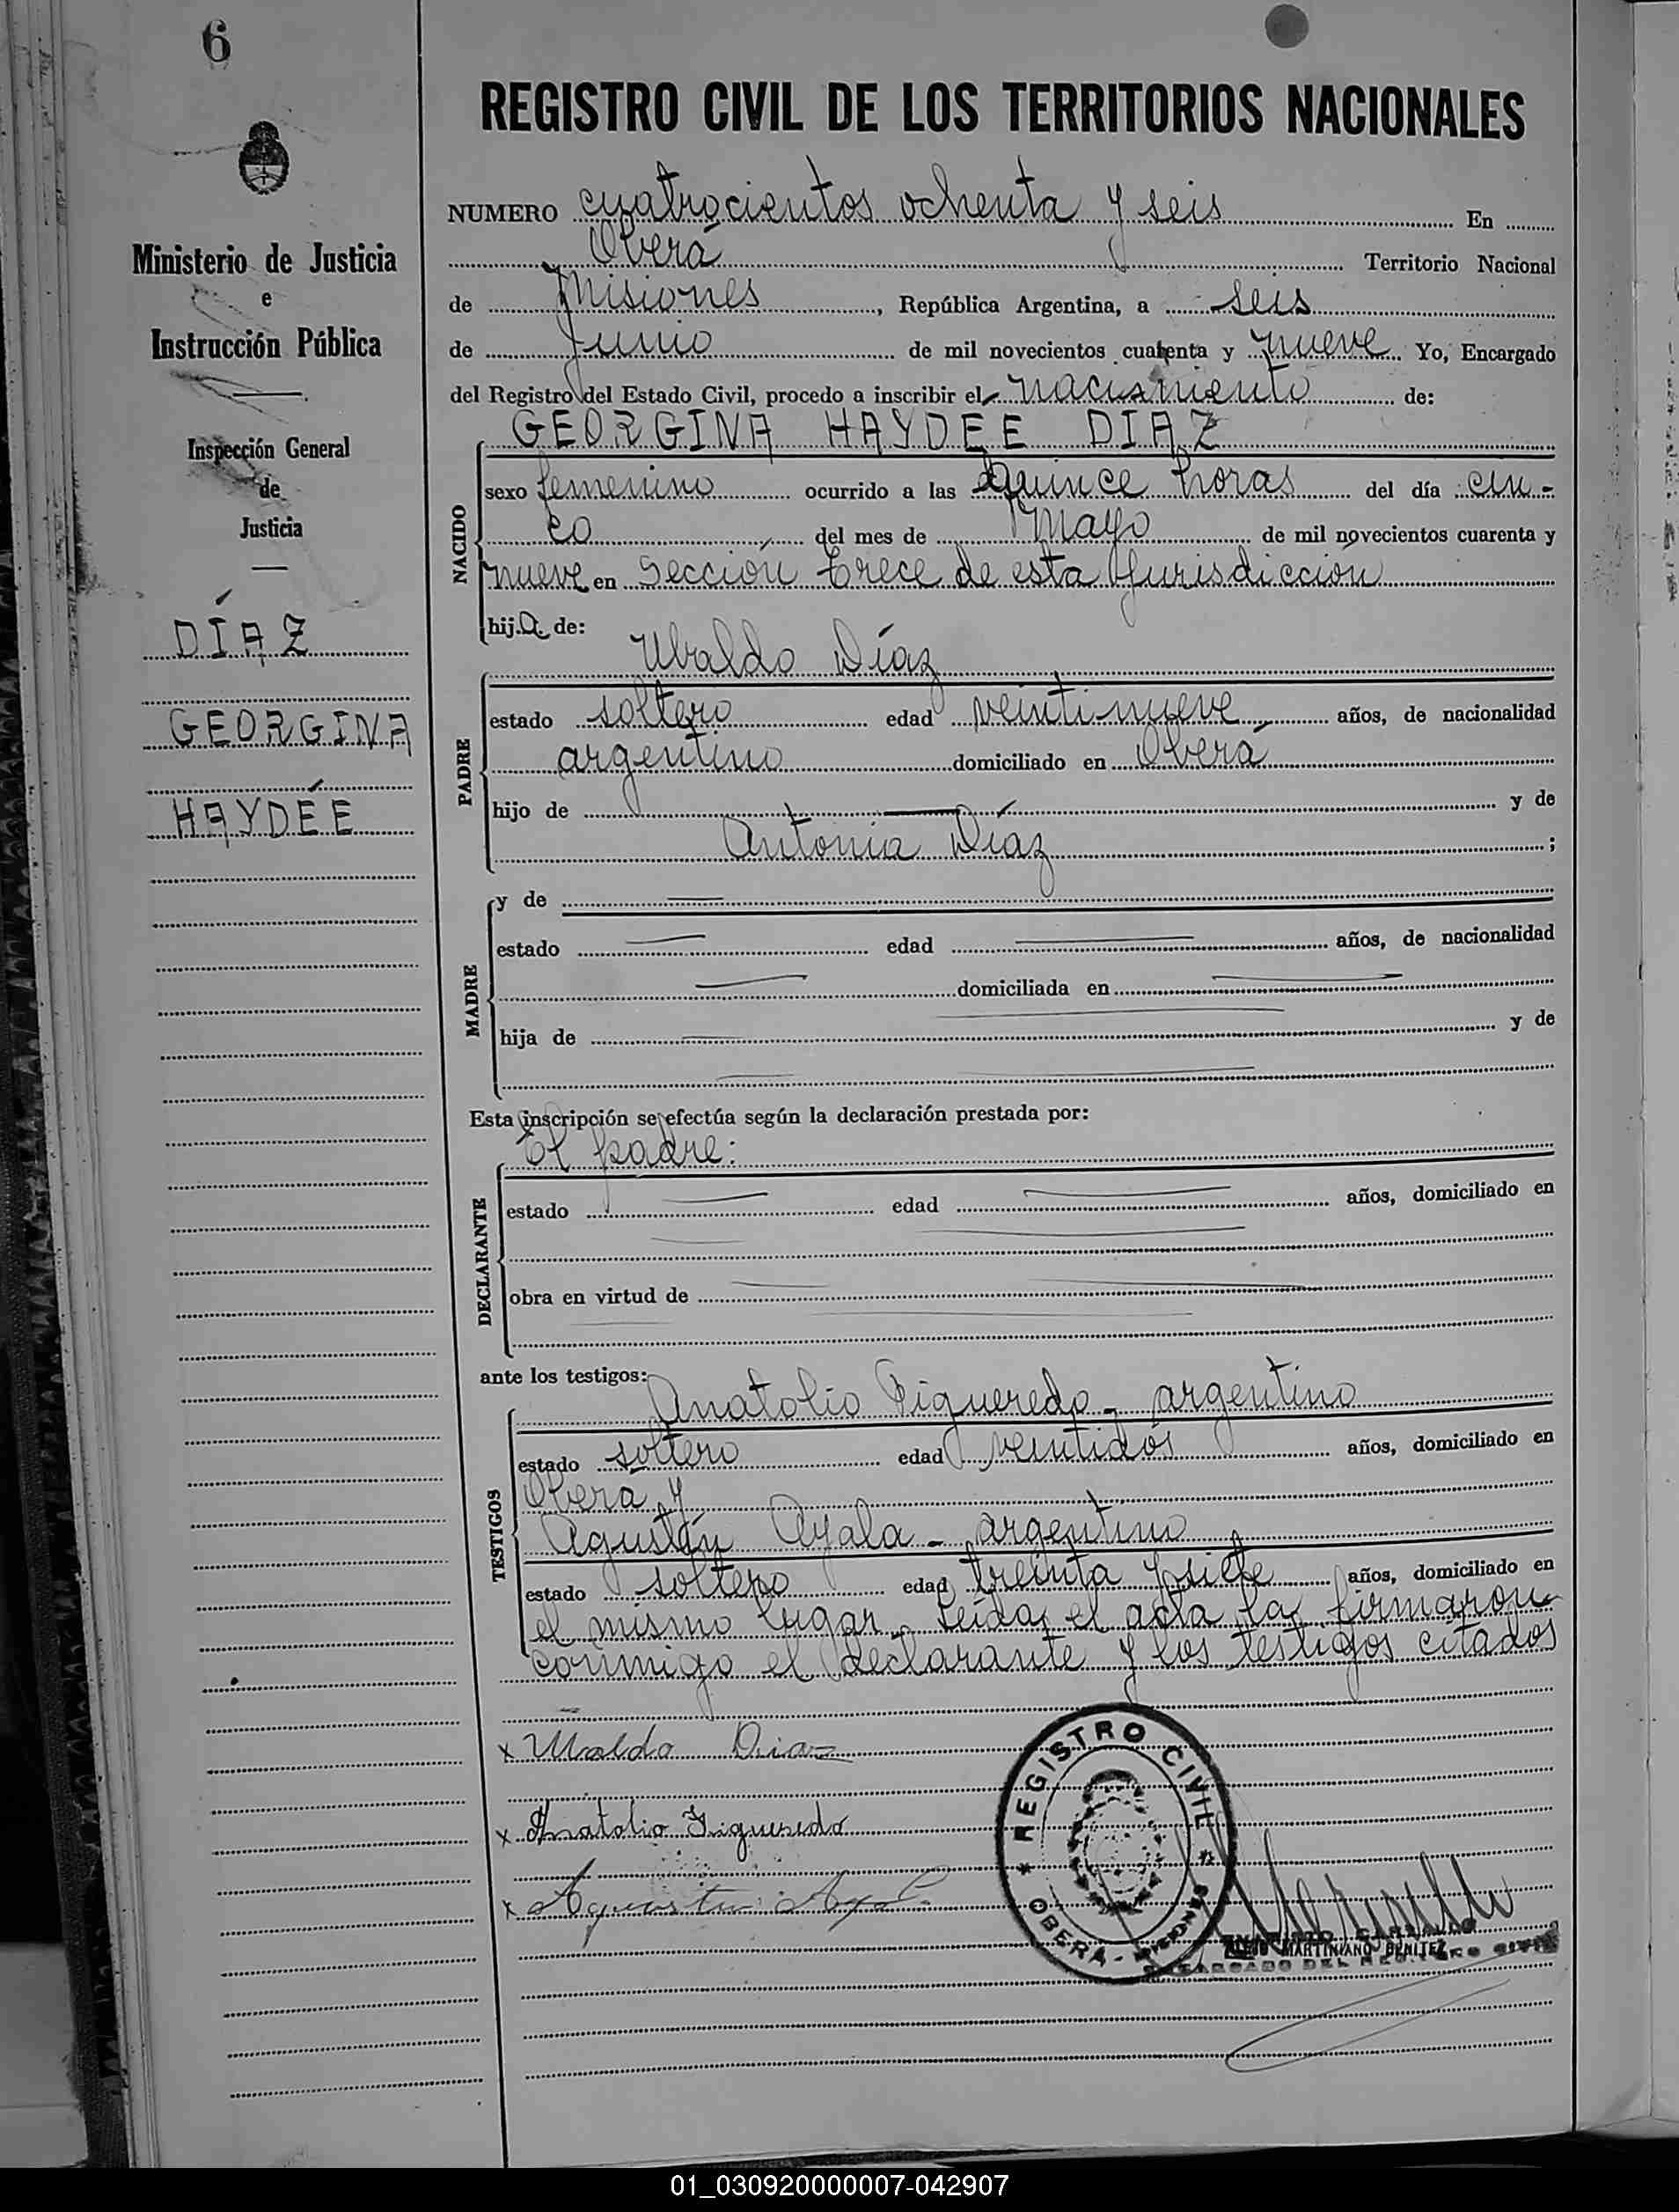 6
Ministerio de Justicia
e
Instrucción Pública
Inspección General
de
Justicia
DÍAZ
GEORGINA
HAYDÉE
REGISTRO CIVIL DE LOS TERRITORIOS NACIONALES
NUMERO cuatrocientos ochenta y seis En
Oberá Territorio Nacional
de Misiones, República Argentina, a seis
de Junio de mil novecientos cuarenta y nueve Yo, Encargado
del Registro del Estado Civil, procedo a inscribir el nacimiento de:
GEORGINA HAYDEE DIAZ
NACIDO
sexo femenino ocurrido a las quince horas del día cin-
co del mes de mayo de mil novecientos cuarenta y
nueve en Sección trece de esta Jurisdicción
hija de:
Ubaldo Díaz
PADRE
estado soltero edad veintinueve años, de nacionalidad
argentino domiciliado en Oberá
hijo de y de
Antonia Díaz ;
MADRE
y de
estado edad años, de nacionalidad
domiciliada en
hija de y de
Esta inscripción se efectúa según la declaración prestada por:
El padre:
DECLARANTE
estado edad años, domiciliado en
obra en virtud de
ante los testigos:
Anatolio Figueredo - argentino
TESTIGOS
estado soltero edad veintidós años, domiciliado en
Oberá y
Agustín Ayala - argentino
estado soltero edad treinta y siete años, domiciliado en
el mismo lugar. Leída el acta la firmaron
conmigo el declarante y los testigos citados
x Ubaldo Diaz
x Anatolio Figueredo
x Agustin Ayala
REGISTRO CIVIL
OBERA - MISIONES
MARTINIANO BENITEZ
ENCARGADO DEL REGISTRO CIVIL
01_030920000007-042907